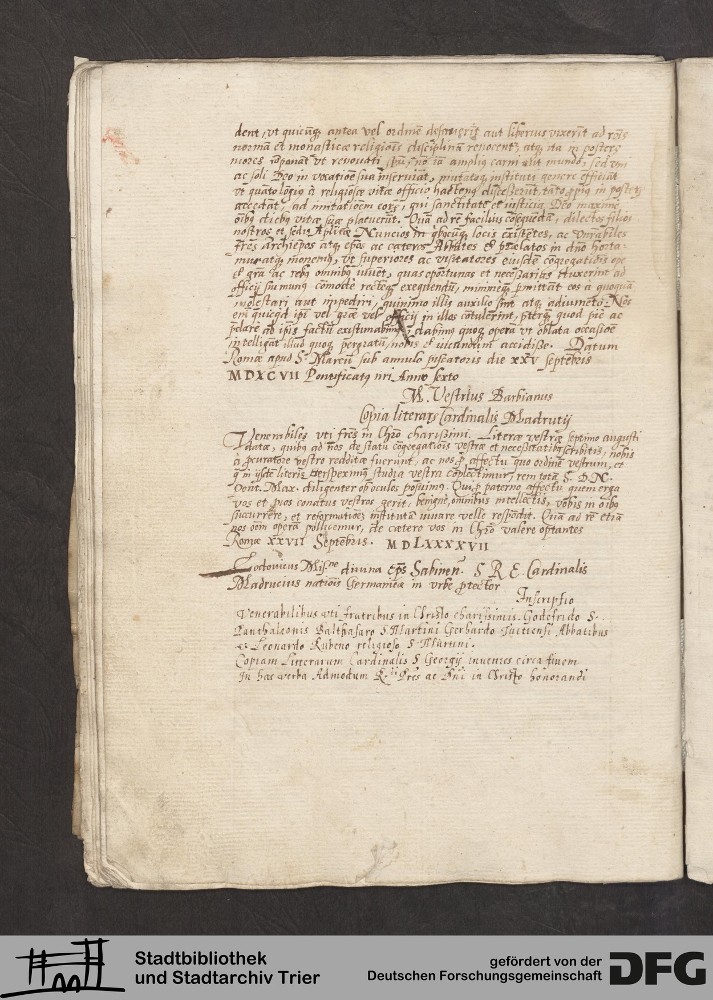 dent, ut quicũq̃ antea vel ordinẽ aut liberius vixerĩt ad
normã et monasticæ religionis disciplinã revocent, atq̃ ita in
mores ut renovati nõ iã ampliꝰ carni aut mundo, sed uni
ac soli Deo in vocatiõe sua inserviãt, instituti genere
ut religiosæ vitæ officio
accedãt, ad imitatiõem qui sanctitate et iusticia Deo maxime
diebꝰ vitæ suæ placuerũt. Quã ad rẽ faciliꝰ dilectos filios
nostros et sedis Aplicæ Nuncios locis ac
frẽs Archiepõs atq̃ epõs ac cæteros Abbates et prælatos in dño horta-
mur atq̃ monemꝰ, ut superiores ac visitatores eiusdẽ cõgregationis ope
et grã ac rebꝰ omnibꝰ iuvẽt, quas oportunas et necessarias ad
officiũ suũ munꝰ cõmode exequendũ, permittãt eos à quoquã
molestari aut impediri, quinimo illis auxilio sint atq̃ adiumẽto. Nos
em̃ quicqd ipi vel gratiæ vel officij in illos cõtulerint, quod pie ac
ad ipsis factũ existimabimꝰ, dabimꝰ quoq̃ operã ut oblata occasiõe
intelligãt illud quoq̃ pergratũ nobis et iucundum accidisse. Datum
Romæ apud S. Marcũ sub annulo piscatoris die XXV septẽbris
MDXCVII Pontificatꝰ nri Anno sexto
M. Vestrius Barbianus
Copia literarꝫ Cardinalis Madrutij
Venerabiles uti frẽs in Chr̃o charissimi. Literæ vestræ septimo augusti
datæ, quibꝰ ad nos de statu cõgregatiõis vestræ et necessitatibꝰ scribitis, nobis
à pcuratore vestro redditæ fuerunt, ac nos affectu quo ordinẽ vestrum, et
literis perspeximꝰ studia vestra complectimur, rem totã S. D. N.
Pont. Max. diligenter ob oculos posuimꝰ. Qui paterno affectu quem erga
vos et pios conatus vestros gerit, benigne, omnibus intellectis, vobis in õibꝰ
succurrere, et reformatiões institutã iuvare velle respõdit. Quã ad rẽ etiã
nos õem operã pollicemur, de cætero vos in Chr̃o valere optantes
Romæ XXVII Septẽbris. MDLXXXXVII
Lodovicus divina Epũs Sabinen̄. S R E. Cardinalis
Madrucius nationis Germanicæ in urbe ꝓtector
Inscriptio
Venerabilibus uti fratribus in Christo charissimis. Godefrido S.
Panthaleonis Balthasaro S Martini Gerhardo Tuitiensi Abbatibus
et Leonardo Rubeno religioso S. Martini.
Copiam Literarum Cardinalis S Georgij invenies circa finem
in hæc verba Admodum R. Prẽs ac Dñi in Christo honorandi
Stadtbibliothek
und Stadtarchiv Trier
gefördert von der
Deutschen Forschungsgemeinschaft
DFG